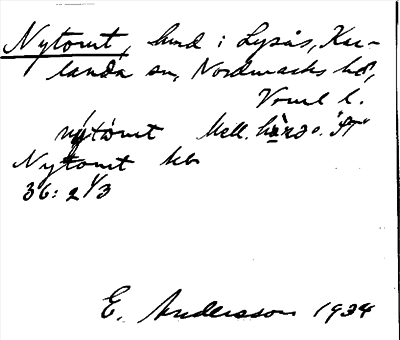 Nytomt, hmd i Lysås, Kar-
landa sn, Nordmarks hd,
Vrml l.
nýtòmt Mell.
Nytomt kb
36: 2 1/3
E. Andersson 1934